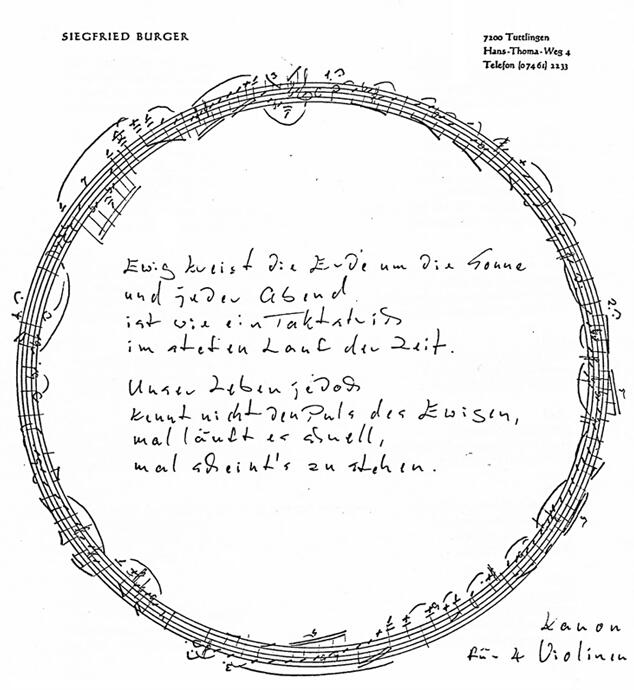 SIEGFRIED BURGER
7200 Tuttlingen
Hans-Thoma-Weg 4
Telefon (07461) 2233
Ewig kreist die Erde um die Sonne
und jeder Abend
ist wie ein Taktstrich
im steten Lauf der Zeit.
Unser Leben jedoch
kennt nicht den Puls des Ewigen,
mal läuft es schnell,
mal scheint's zu stehen.
Kanon
für 4 Violinen